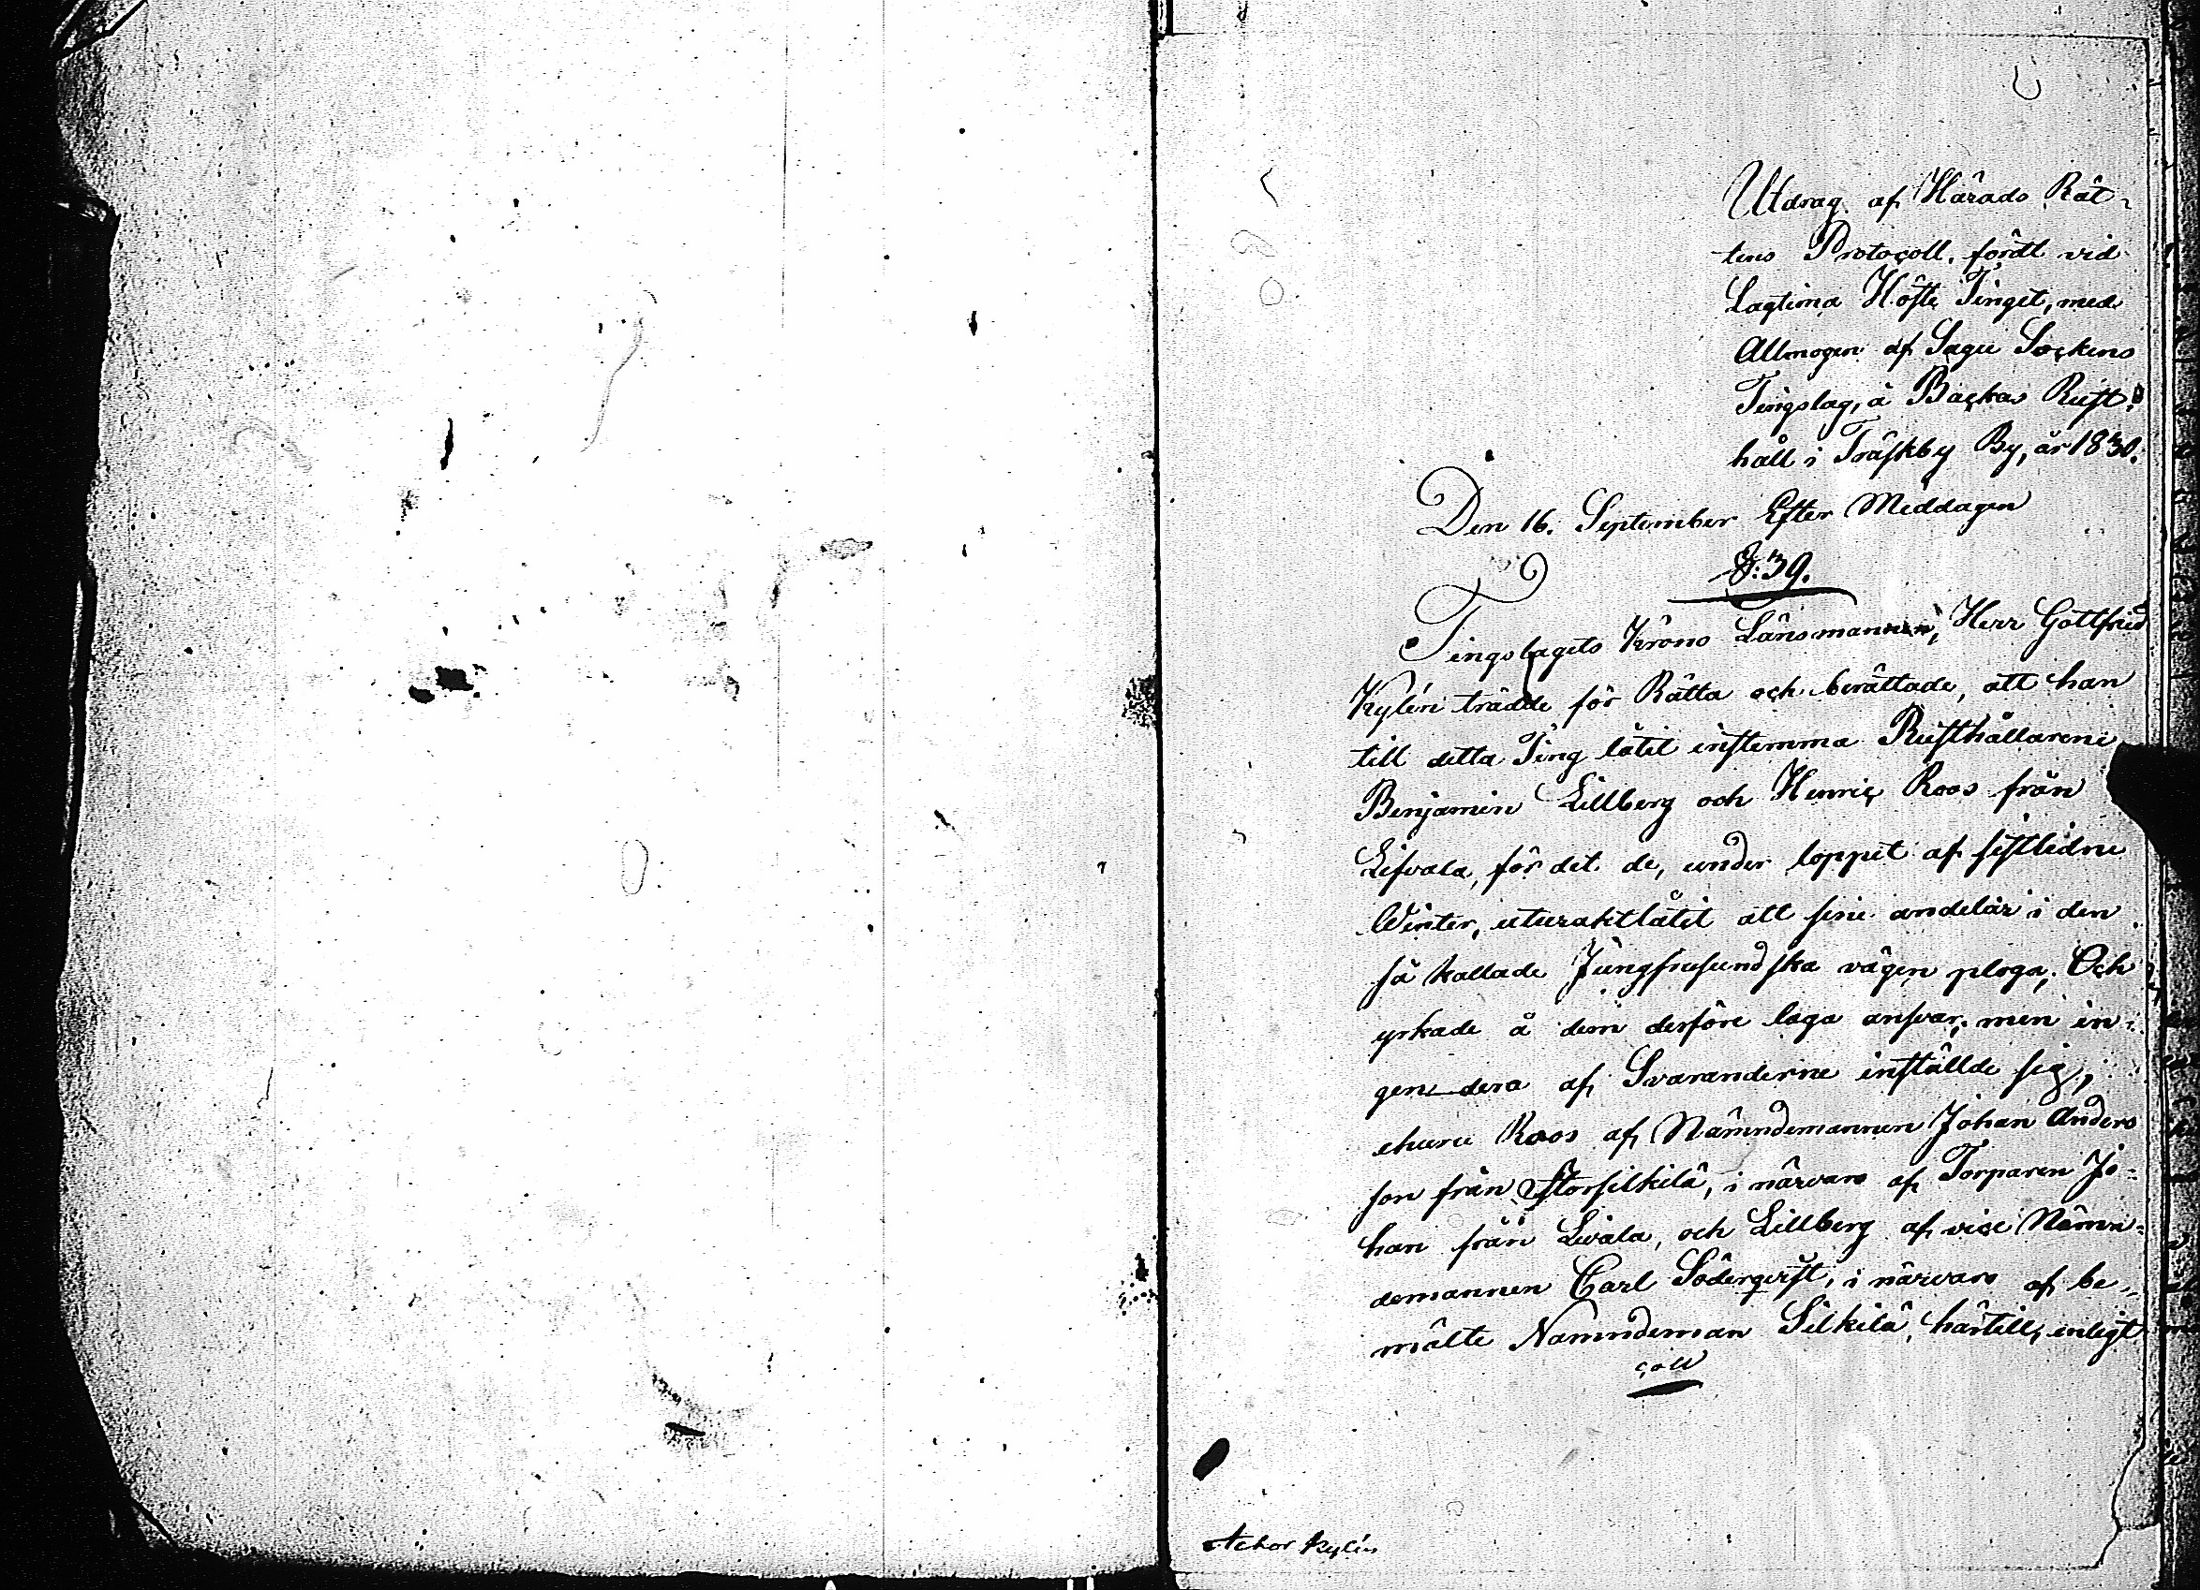 Utdrag af Härads Rät-
tens Protocoll, fördt vid
Lagtima Höste Tinget, med
Allmogen af Sagu Sockens
Tingslag, å Backas Rust-
håll i Träskby By, år 1830.
Den 16. September Efter Middagen
§: 39.
Tingslagets Krono Länsmannen, Herr Gottfrid
Kylén trädde för Rätta och berättade, att han
till detta Ting låtit instemma Rusthållarene
Benjamin Lillberg och Henric Roos från
Lifvala, för det de, under loppet af sistledne
Winter, uturaktlåtit att sine andelar i den
så kallade Jungfrusundska vägen ploga; Och
yrkade å dem derföre laga ansvar; men in-
gendera af Svaranderne inställde sig,
ehuru Roos af Nämndemannen Johan Anders
son från Storsilkilä, i närvaro af Torparen Jo-
han från Livala, och Lillberg af vice Nämn-
demannen Carl Söderqvist, i närvaro af be-
mälte Nämndeman Silkilä, härtill, enligt
coll
Actor Kylén